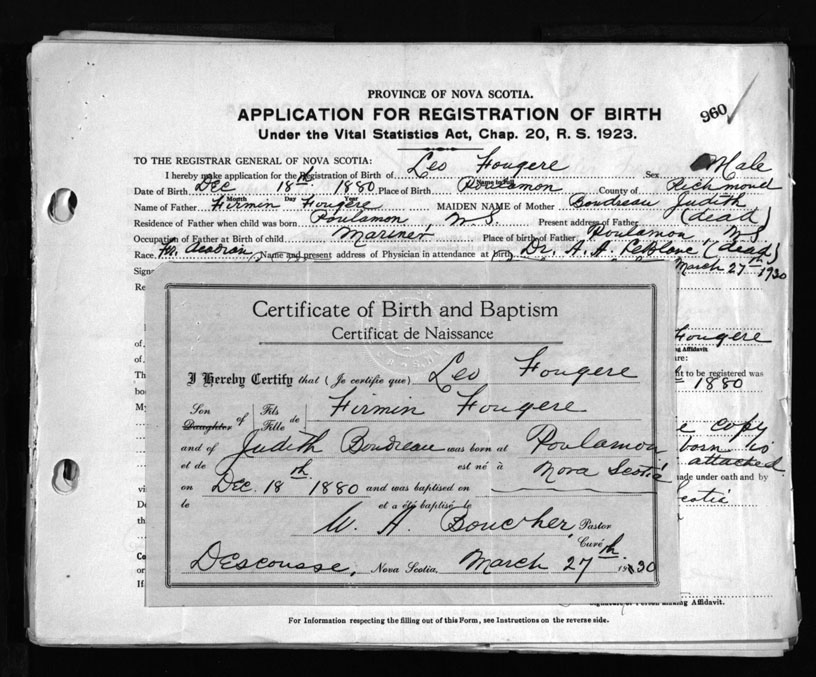 PROVINCE OF NOVA SCOTIA.
960
APPLICATION FOR REGISTRATION OF BIRTH
Under the Vital Statistics Act, Chap. 20, R. S. 1923.
TO THE REGISTRAR GENERAL OF NOVA SCOTIA:
I hereby make application for the Registration of Birth of Leo Fougere Sex Male
Date of Birth Dec 18th 1880 Place of Birth Poulamon County of Richmond
Month Day Year
Name of Father Firmin Fougere MAIDEN NAME of Mother Boudreau Judith
Residence of Father when child was born Poulamon N.S. Present address of Father (dead)
Occupation of Father at Birth of child Mariner Place of birth of Father Poulamon, N.S
Race Fr. Acadian Name and present address of Physician in attendance at birth Dr. A. A. LeBlanc (dead)
March 27th 1930
Certificate of Birth and Baptism
Certificat de Naissance
I Hereby Certify that (Je certifie que) Leo Fougere
Son Daughter of Fils Fille de Firmin Fougere
and of Judith Boudreau was born at Poulamon,
et de est né à Nova Scotia
on Dec. 18th 1880 and was baptised on
le et a été baptisé le
W. A. Boucher, Pastor
Curé
Descousse, Nova Scotia, March 27th. 1930
Fougere
ing Affidavit.
re:
nt to be registered was
1880
copy
born is
attached
made under oath and by
Scotia
Signature of Person making Affidavit.
For Information respecting the filling out of this Form, see Instructions on the reverse side.